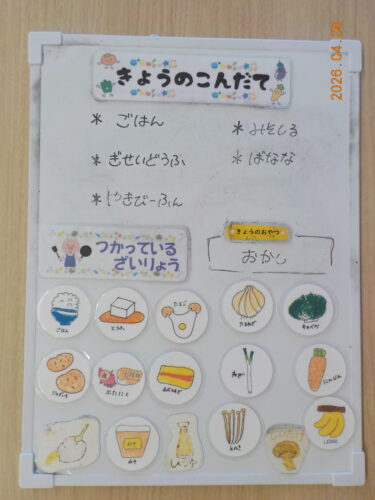 きょうのこんだて
* ごはん
* みそしる
* ぎせいどうふ
* ばなな
* やきびーふん
つかっている
ざいりょう
きょうのおやつ
おかし
ごはん
とうふ
たまご
たまねぎ
キャベツ
じゃがいも
ぶたにく
あぶらあげ
ねぎ
にんじん
みそ
みそ
えのき
しいたけ
ばなな
2026.04.